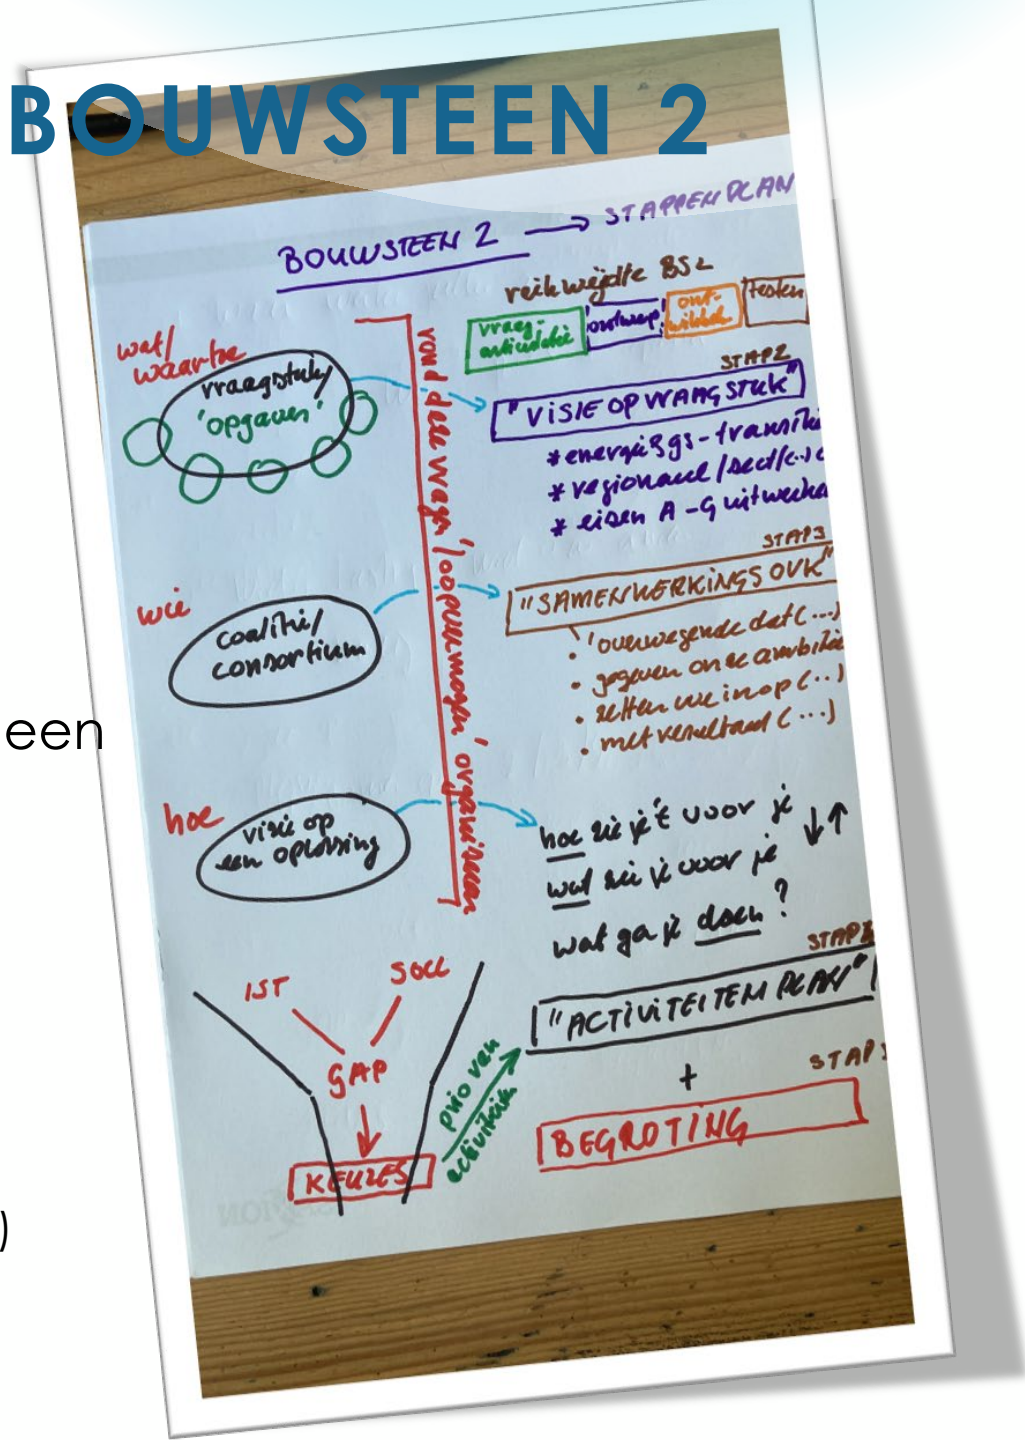 BOUWSTEEN 2
BOUWSTEEN 2 → STAPPENPLAN
reikwijdte BS2
vraag-
articulatie
ontwerp
ont-
wikkel
Testen
wat/
waartoe
vraagstuk/
'opgaven'
STAP2
"VISIE OP VRAAGSTUK"
* energie &
* regionaal /
* eisen A - G uitwerken
rond deze vragen 'loopvermogen' organiseren
wie
coalitie/
consortium
STAP3
"SAMENWERKINGSOVK"
• 'overwegende dat (...)
• gegeven onze ambitie
• zetten we in op (...)
• met resultaat (...)
een
hoe
visie op
een oplossing
hoe zie je 't voor je
wat zie je voor je
wat ga je doen?
IST
SOLL
GAP
KEUZES
prio van
activiteiten
STAP
"ACTIVITEITEN PLAN"
+
STAP
BEGROTING
)